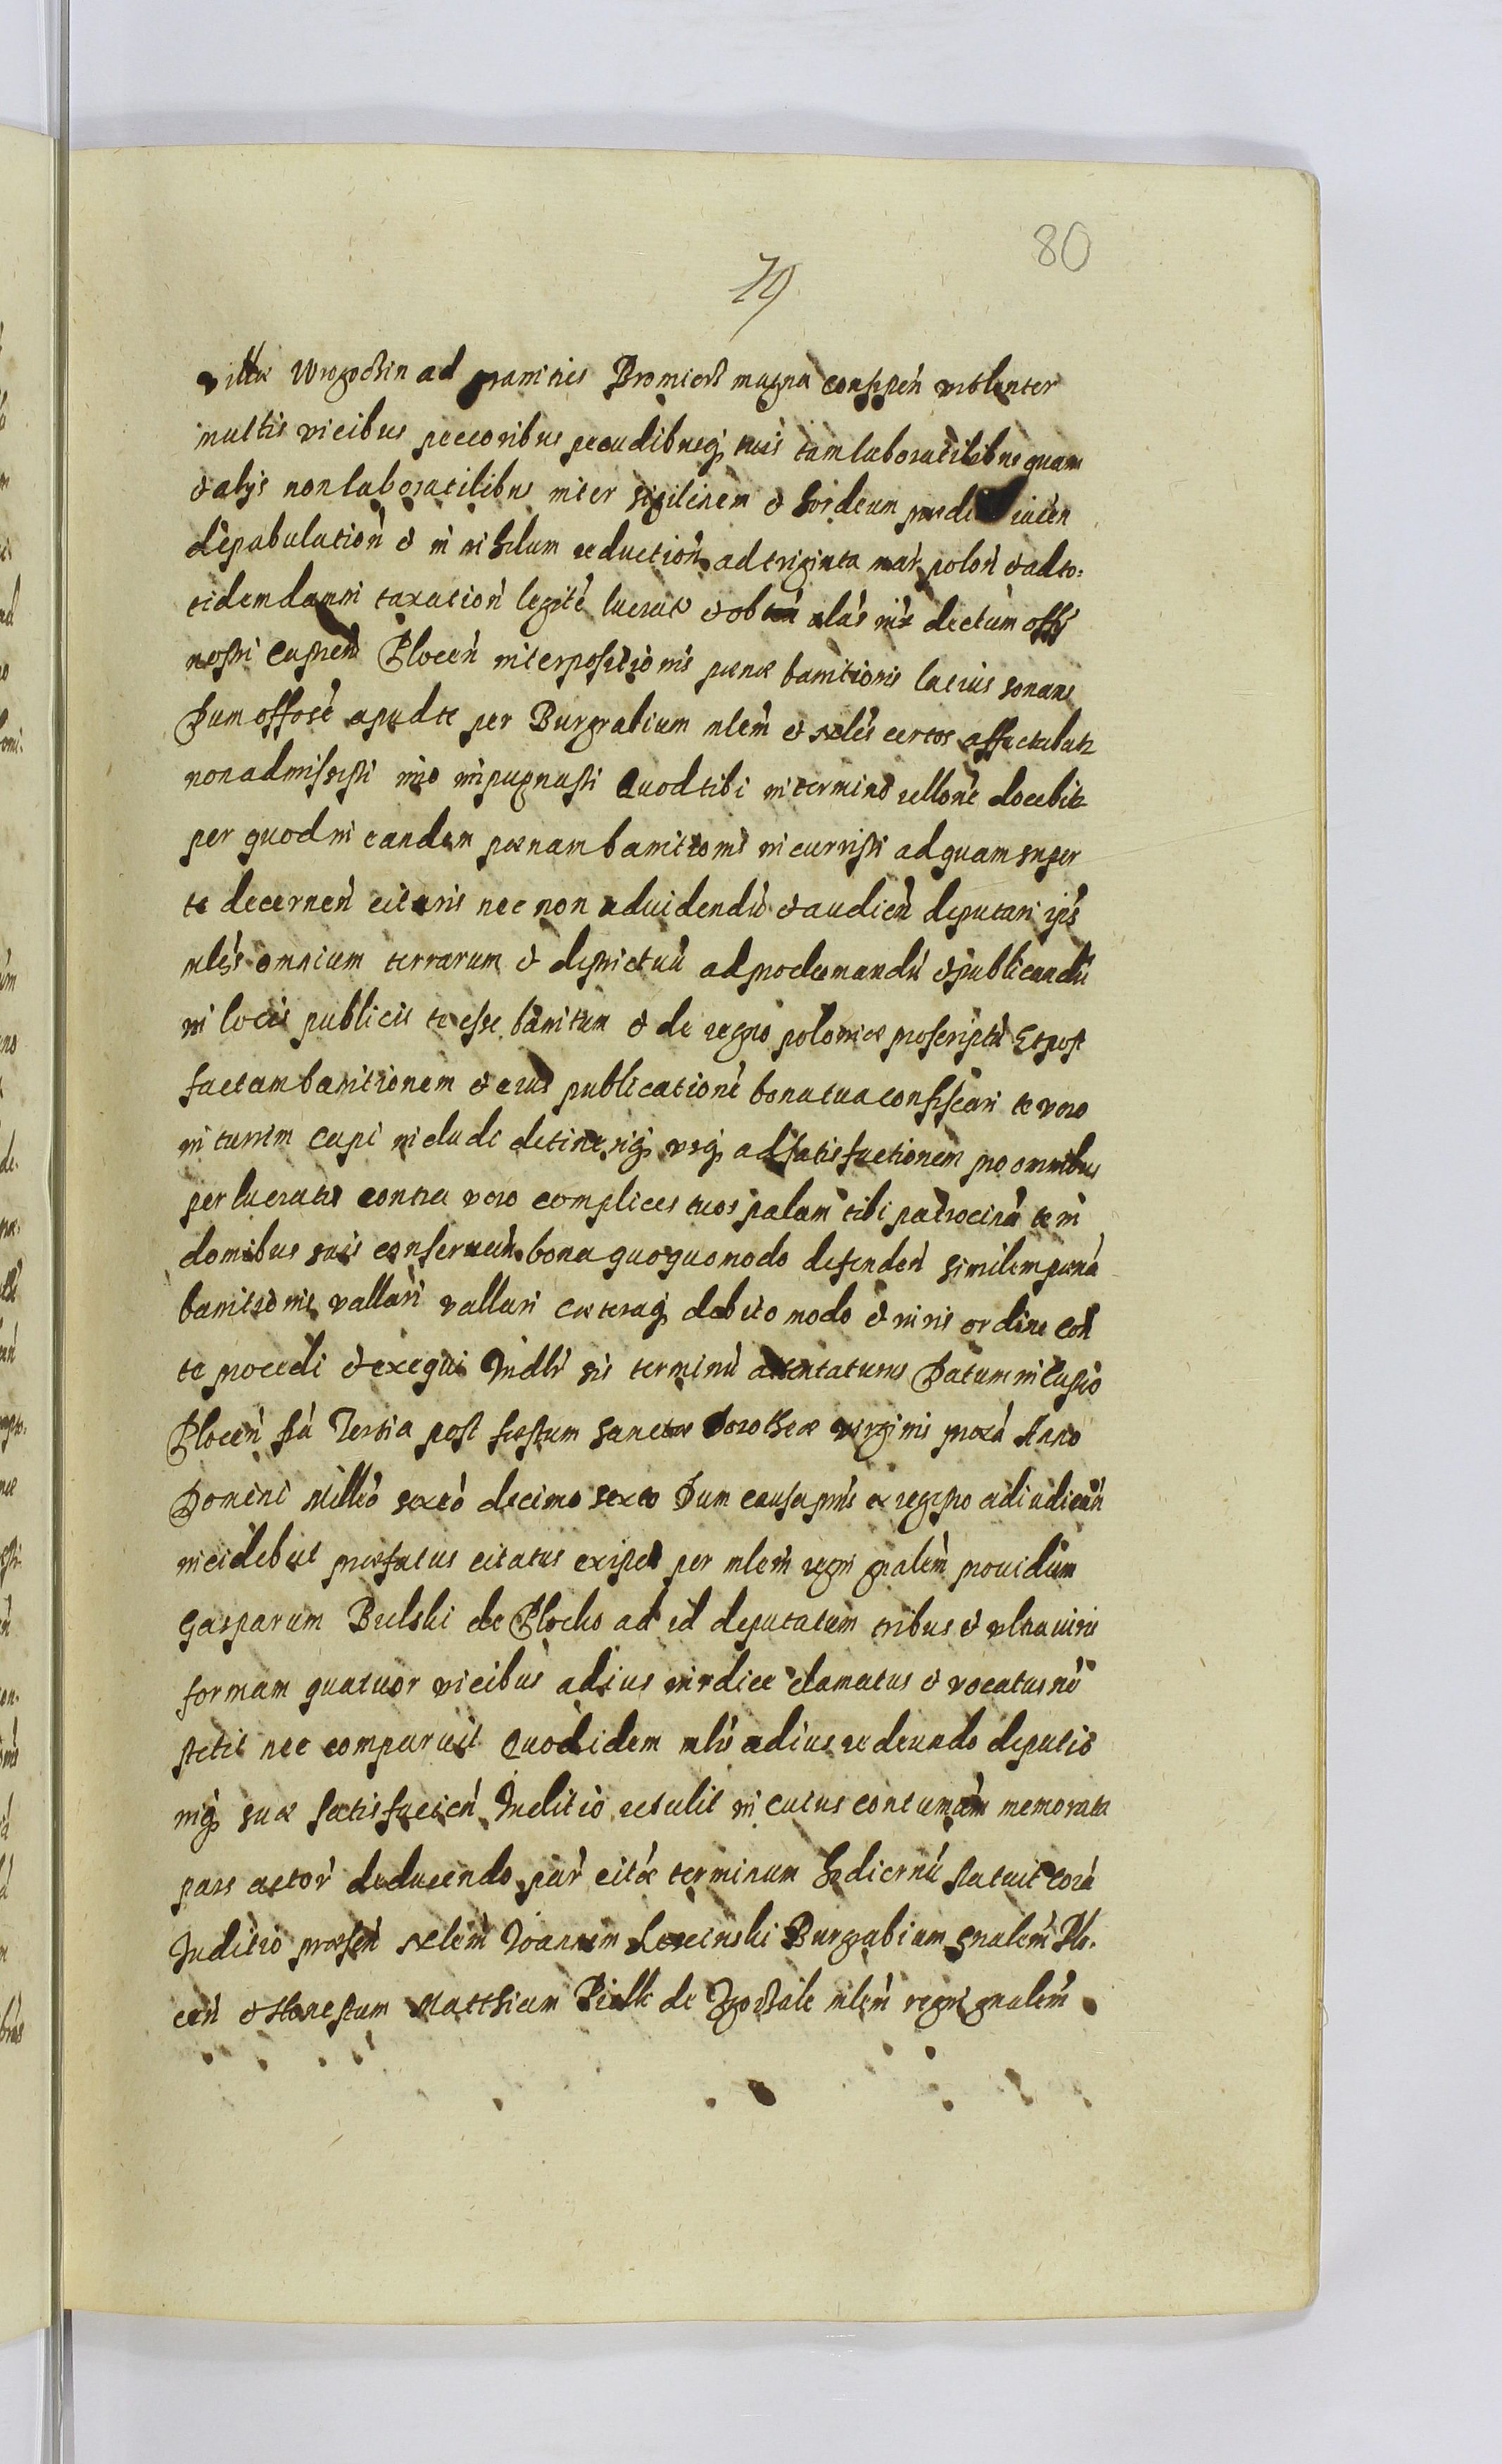 80
79
villae Wrogoczin ad granities Bromierz magna conspen violenter
multis vicibus pecoribus pecudibusq tuis tam laboratilibus quam
et alys non laboratilibus inter sigilinem et hordeum iacen
depabulation et in nihilum reduction ad triginta mar polon et ad to:
tidem damni taxation legite lucrat et ob vlas nis dectum offy
nostri Castren Plocen interpositionis paenae banitionis latius sonans
Dum offose apud te per Burgrabium nlem et certos affectabatr
non admisisti imo impugnasti Quod tibi in termino rellone docebitr
per quod in eandem paenam banitionis incurristi ad quam super
te decernen citaris nec non ad videndu et audien deputari ips
mles omnium terrarum et districtuu ad proclamandu et publicandu
in locis publicis te esse banitum et de regno poloniae proscriptu Et post
factam banitionem et eius publicatione bona tua confiscari te vero
in turrim capi includi detineriq vsq ad satisfactionem pro omnibus
per lucratis contra vero complices tuos palam tibi patrocinan te in
domibus suis conseruan bona quoquomodo defenden similem paena
banitionis vallari vallari caeteraq debito modo et iuris ordine con
te procedi et exequi Iudlr sis terminu attentaturus Datum in Castro
Plocen fia Tertia post festum Sanctae Dorotheae virginis proxa Anno
Domini Millo sexto decimo sexto Dum causa pnis ex regestro adiudican
incidebat praefatus citatus per mlem regni gnalem prouidum
Gasparum Bielski de Plocko ad id deputatum tribus et vltra iuris
formam quatuor vicibus ad ius vindice clamatus et vocatus no
stetit nec comparuit Quod idem mlis ad ius redeundo deputio
niq suae satisfacien Iuditio retulit in cuius contumam memorata
pars actor deducendo par citae terminum hodiernu statuit cora
Iuditio praesen nlem Ioannem Burgrabium gnalem Plo.
cen et Honestum Matthiam de mlem regni gnalem